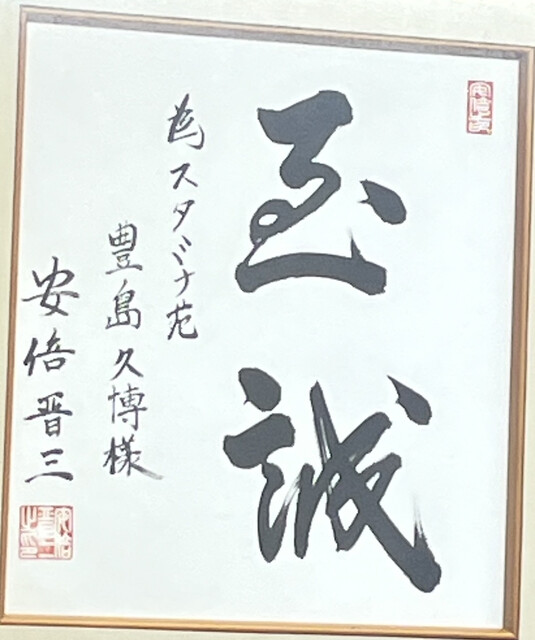 至誠
為スタミナ苑
豊島久博様
安倍晋三